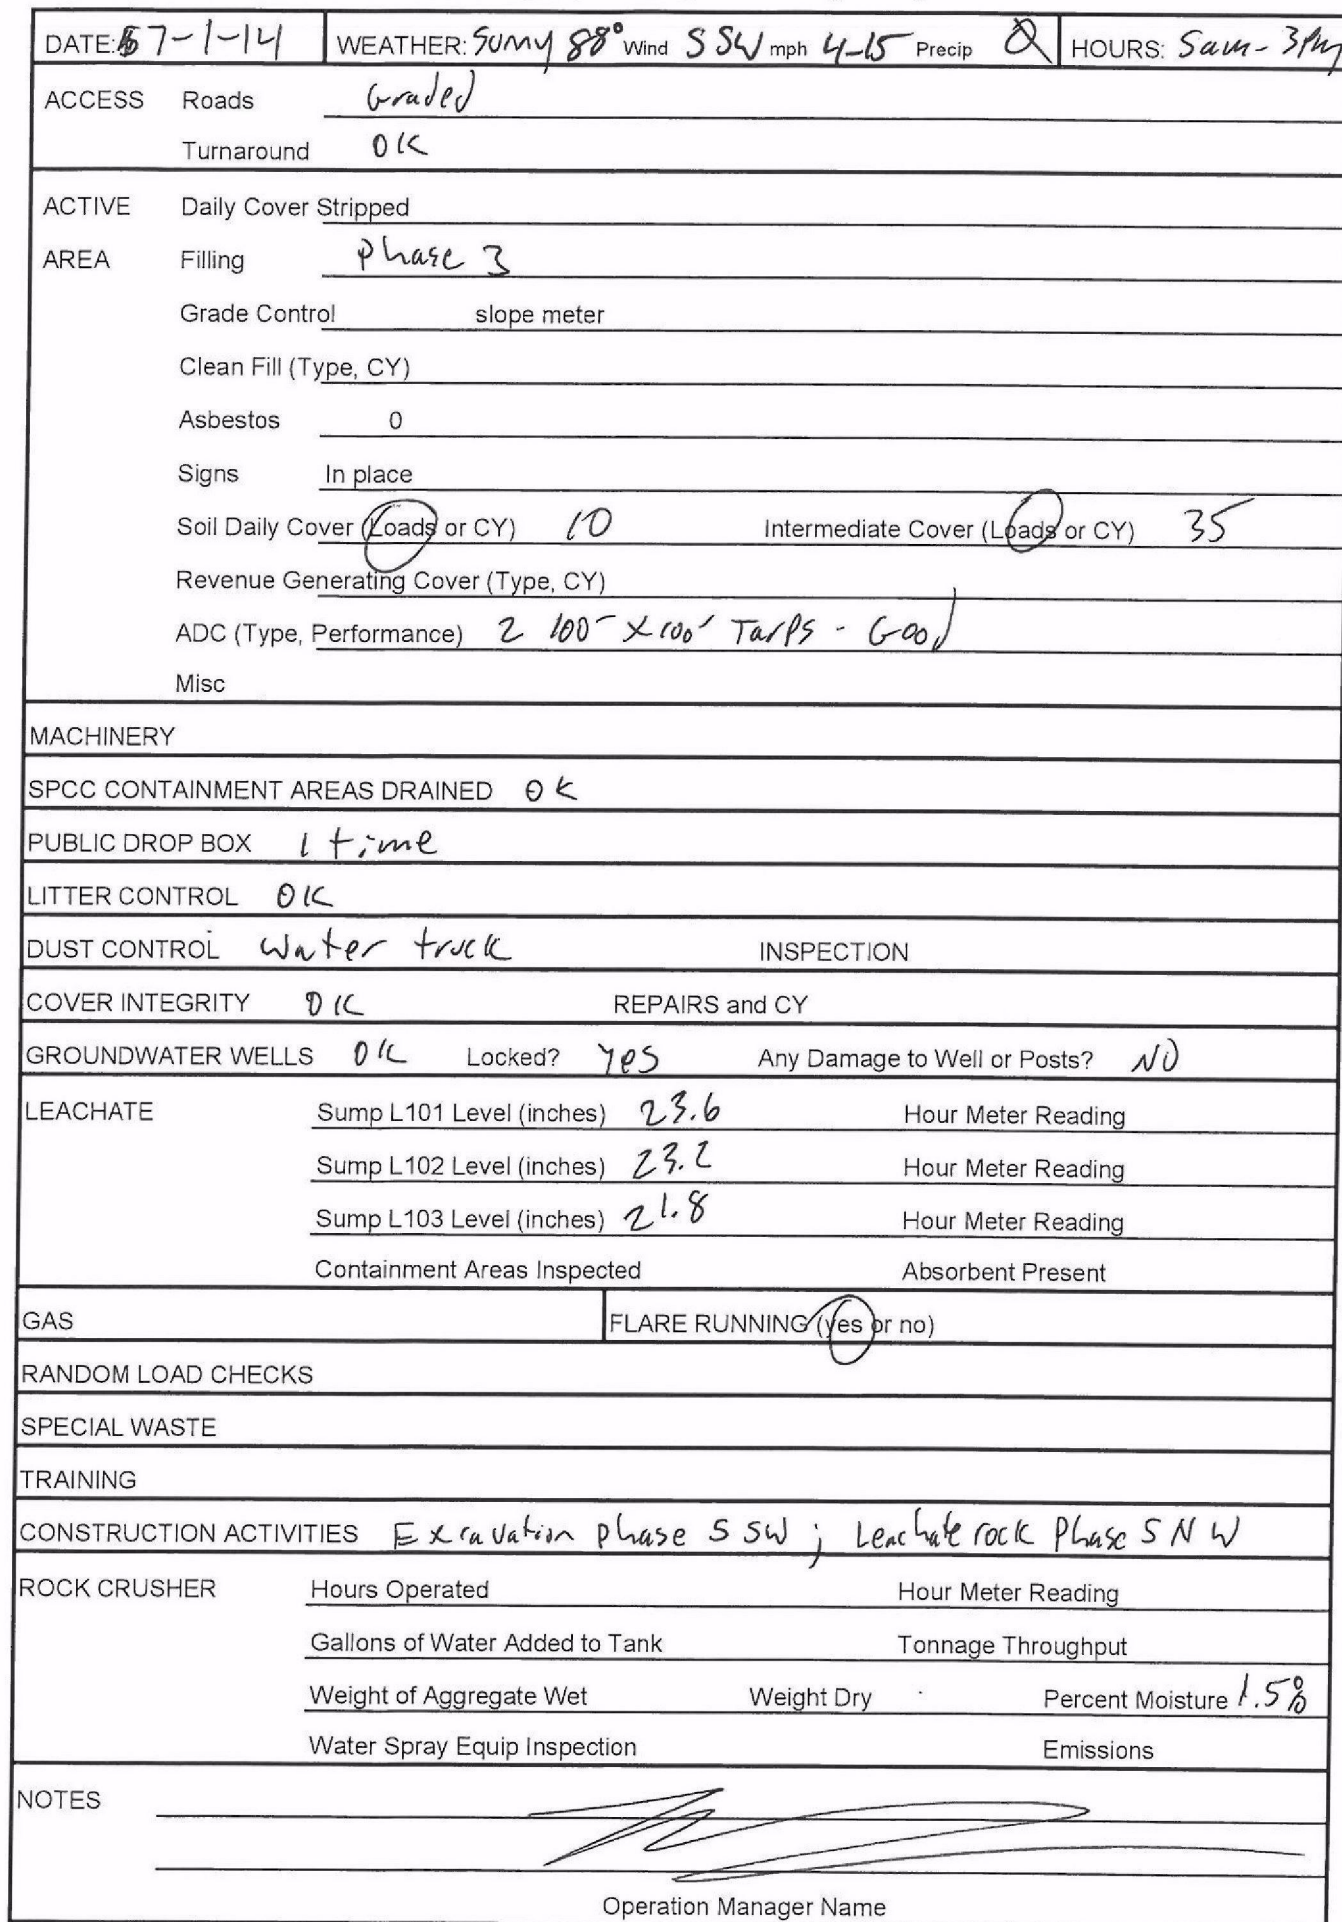 DATE: 7-1-14 WEATHER: Sunny 88° Wind SSW mph 4-15 Precip 0 HOURS: 5am - 3pm
ACCESS Roads Graded
Turnaround OK
ACTIVE Daily Cover Stripped
AREA Filling Phase 3
Grade Control slope meter
Clean Fill (Type, CY)
Asbestos 0
Signs In place
Soil Daily Cover (Loads or CY) 10 Intermediate Cover (Loads or CY) 35
Revenue Generating Cover (Type, CY)
ADC (Type, Performance) 2 100' x 100' Tarps - Good
Misc
MACHINERY
SPCC CONTAINMENT AREAS DRAINED OK
PUBLIC DROP BOX 1 time
LITTER CONTROL OK
DUST CONTROL Water truck INSPECTION
COVER INTEGRITY OK REPAIRS and CY
GROUNDWATER WELLS OK Locked? Yes Any Damage to Well or Posts? NO
LEACHATE Sump L101 Level (inches) 23.6 Hour Meter Reading
Sump L102 Level (inches) 23.2 Hour Meter Reading
Sump L103 Level (inches) 21.8 Hour Meter Reading
Containment Areas Inspected Absorbent Present
GAS FLARE RUNNING (yes or no)
RANDOM LOAD CHECKS
SPECIAL WASTE
TRAINING
CONSTRUCTION ACTIVITIES Excavation phase 5 SW; Leachate rock Phase 5 NW
ROCK CRUSHER Hours Operated Hour Meter Reading
Gallons of Water Added to Tank Tonnage Throughput
Weight of Aggregate Wet Weight Dry Percent Moisture 1.5%
Water Spray Equip Inspection Emissions
NOTES
Operation Manager Name